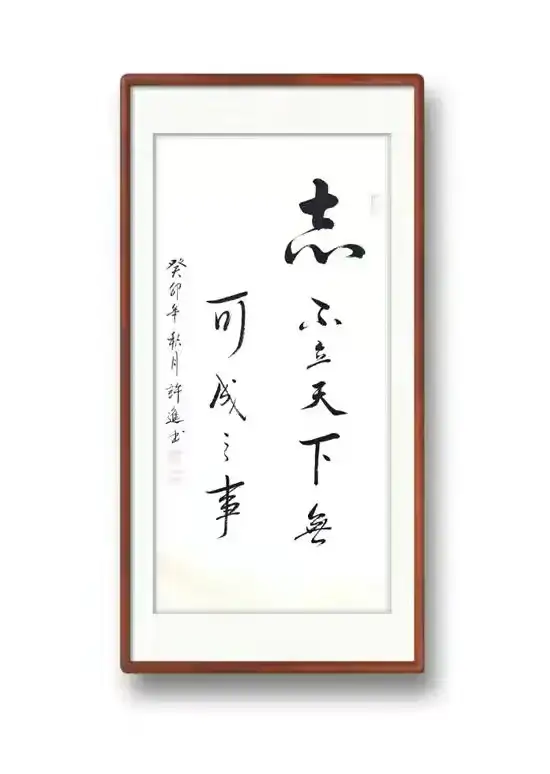 志不立天下無
可成之事
癸卯年秋月許進书